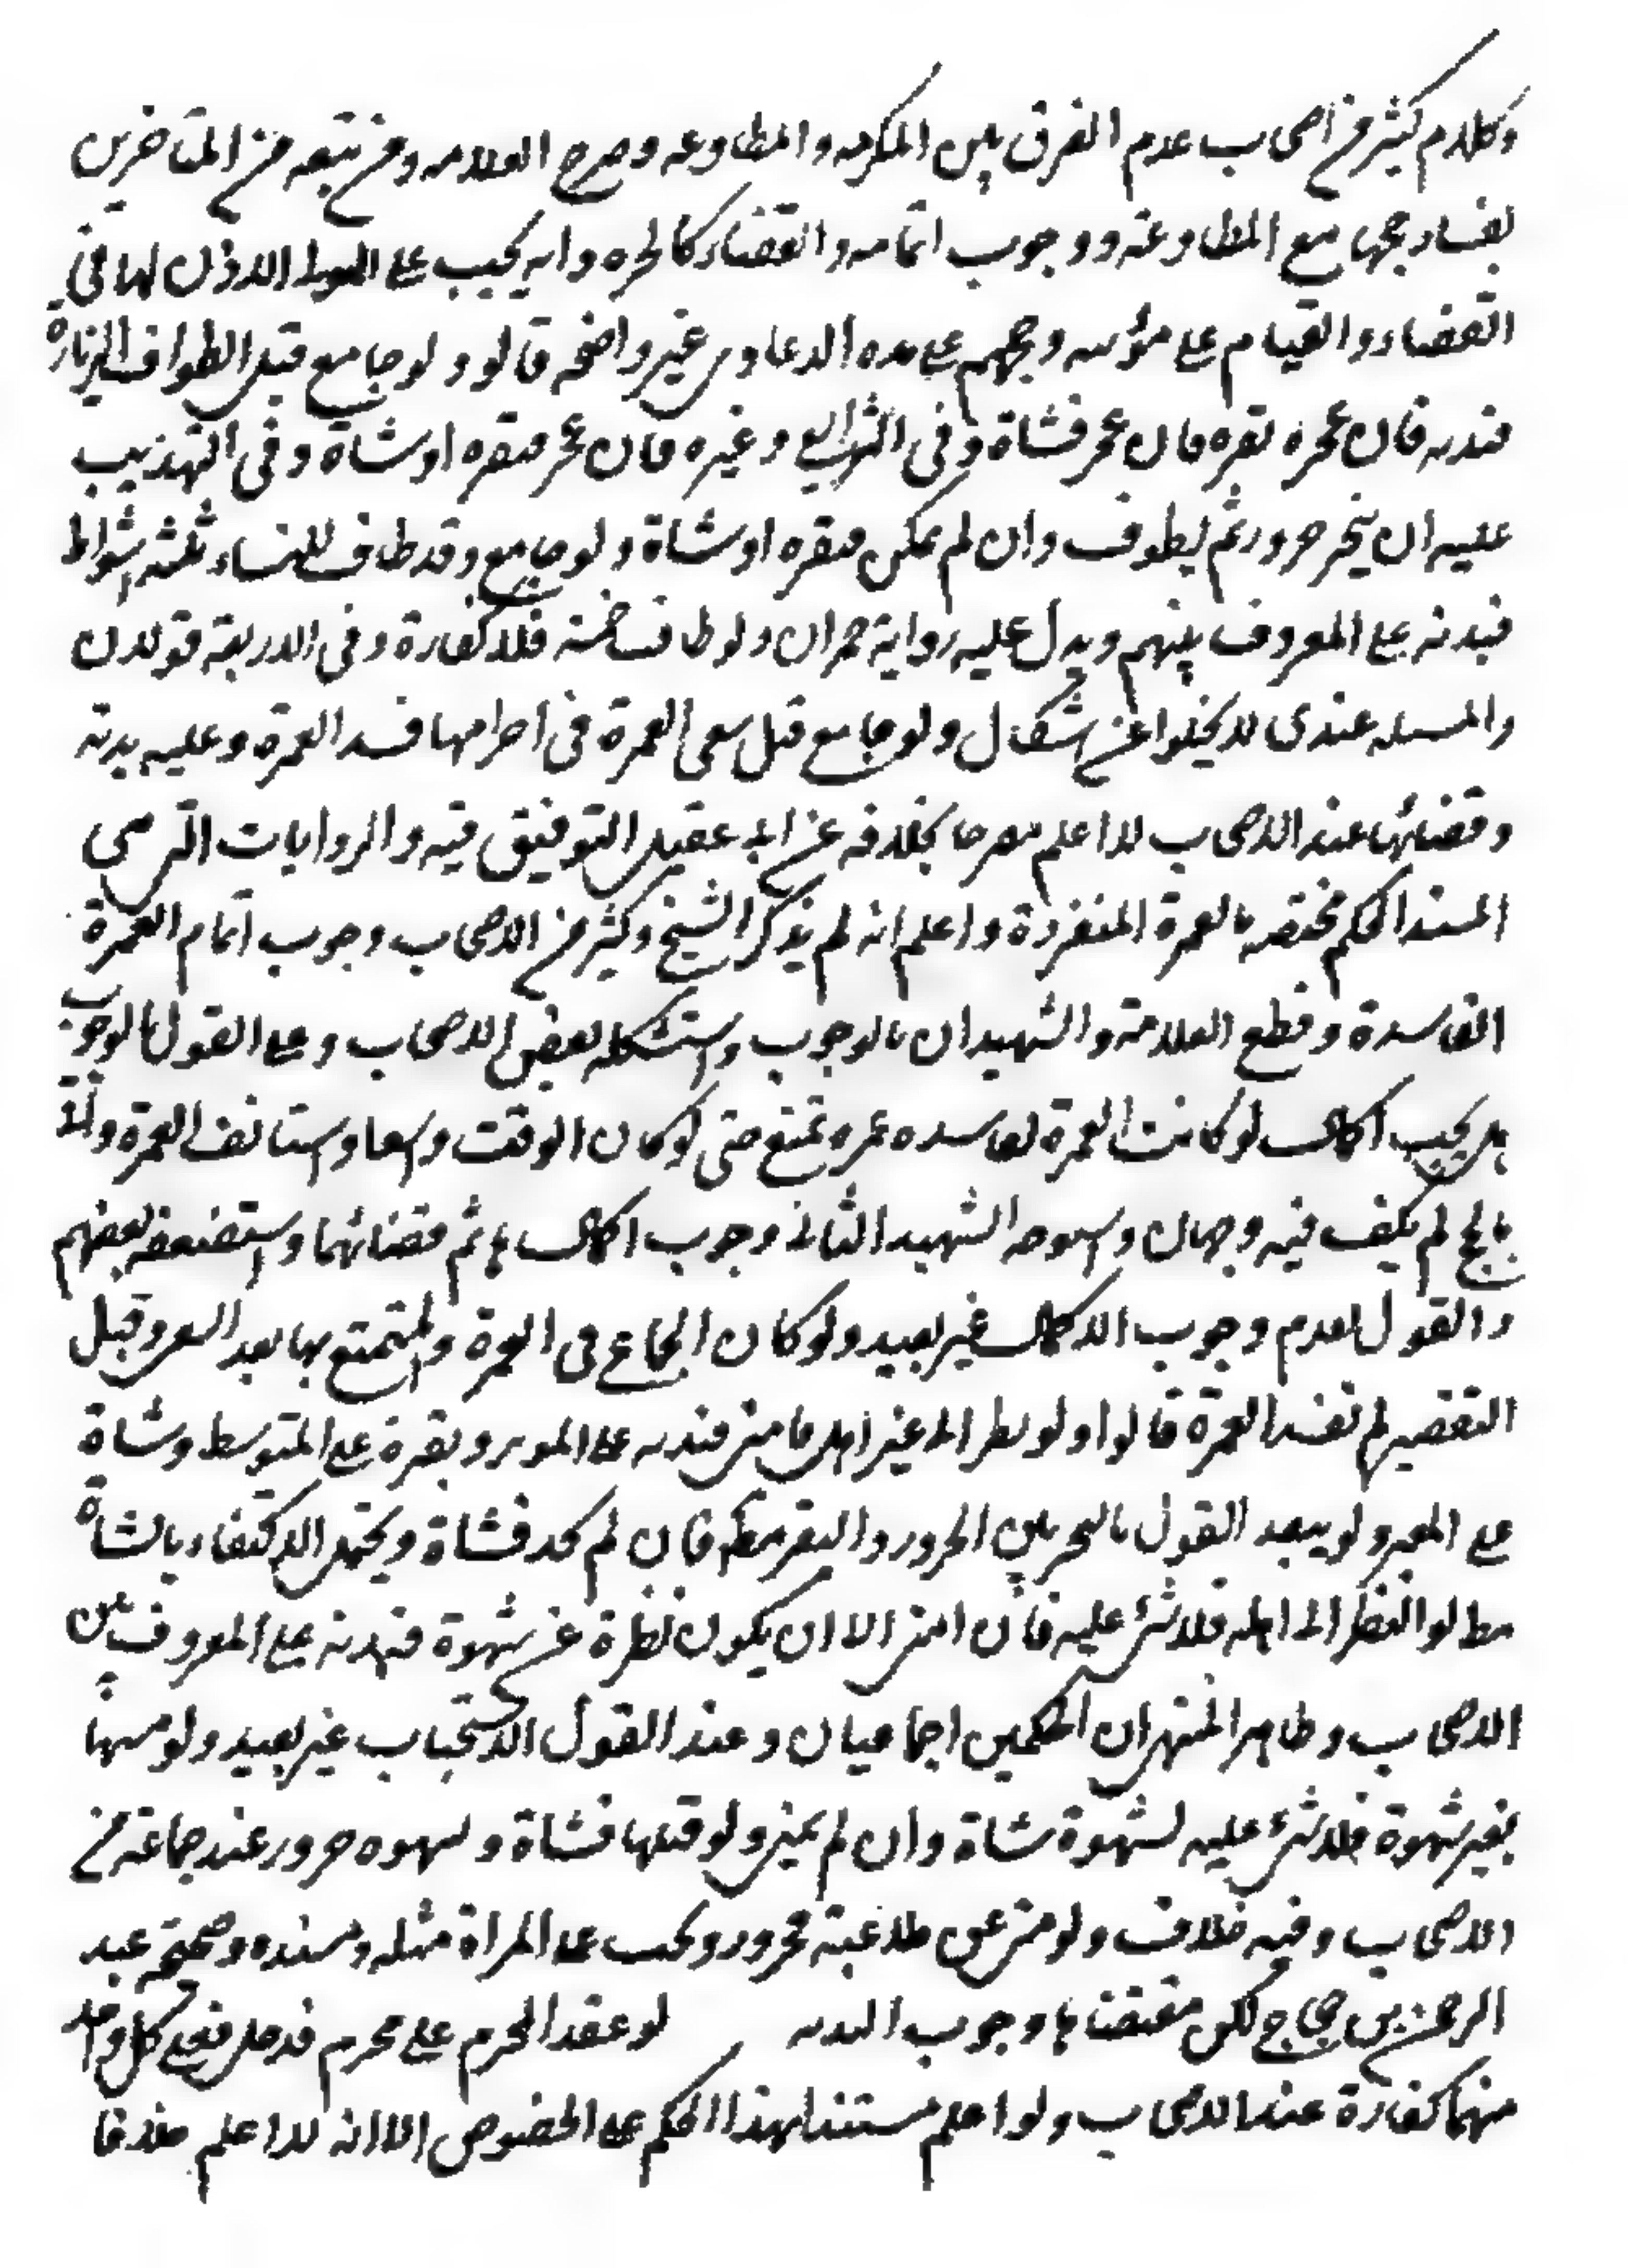 وكلام كثير من أصحاب عدم الفرق بين المكرهه والمطاوعه وصرح العلامه ومن تبعه من المتاخرين
بفساد حجها مع المطاوعة ووجوب اتمامه والقضاء كالحره وانه يجب على المولى الاذن لها في
القضاء والقيام على مؤنته وحجهم على هذه الدعاوى غير واضحه قالو ولو جامع قبل الطواف الزيارة
فبدنه فان عجز فبقره فان عجز فشاة وفي الشرايع وغيره فان عجز فبقره او شاة وفي التهذيب
عليه ان ينحر جزور ثم يطوف وان لم يمكن فبقره او شاة ولو جامع وقد طاف للنساء ثلثه اشواط
فبدنه على المعروف بينهم ويدل عليه رواية حمران ولو طاف خمسة فلا كفارة وفي الاربعة قولان
والمسئله عندى لا يخلوا عن اشكال ولو جامع قبل سعى العمرة في احرامها فسد العمرة وعليه بدنة
وقضائها عند الاصحاب لا اعلم مصرحا بخلافه عن ابن عقيل التوقف فيه والروايات التي هي
المستند الحكم مختصه بالعمرة المنفردة واعلم انه لم يذكر الشيخ وكثير من الاصحاب وجوب اتمام العمرة
الفاسدة وقطع العلامة والشهيدان بالوجوب واستشكله بعض الاصحاب وعلى القول بالوجوب
هل يجب اكمال لو كانت العمرة الفاسده عمره تمتع حتى لو كان الوقت واسعا واستانف العمرة واتى
بالحج لم يكف فيه وجهان واستوجه الشهيد الثانى وجوب اكمالها ثم قضائهما واستضعفه بعضهم
والقول بعدم وجوب الاكمال غير بعيد ولو كان الجماع في العمرة والمتمتع بها بعد السعى وقبل
التقصير لم تفسد العمرة قالوا ولو نظر الى غير اهله فامنى فبدنه على الموسر وبقرة على المتوسط وشاة
على المعسر ولو يبعد القول بالتخير بين الجزور والبقر مط فان لم يجد فشاة ويحتمل الاكتفاء بالشاة
مط لو النظر الى اهله فلا شئ عليه فان امنى الا ان يكون نظرة عن شهوة فبدنه على المعروف بين
الاصحاب وظاهر المنتهى ان الحكمين اجماعيان وعند القول الاستحباب غير بعيد ولو مسها
بغير شهوة فلا شئ عليه لشهوة شاة وان لم يمنى ولو قبلها فشاة ولشهوه جزور عند جماعة من
الاصحاب وفيه خلاف ولو منى عن ملاعبة فجزور ويجب على المراة مثله ومسنده صحيحة عبد
الرحمن بن حجاج لكن مقتضاها وجوب البدنه لو عقد المحرم على محرم فدخل فعلى كل واحد
منهما كفارة عند الاصحاب ولو اعلم مستندا لهذا الحكم على الخصوص الا انه لا اعلم خلافا